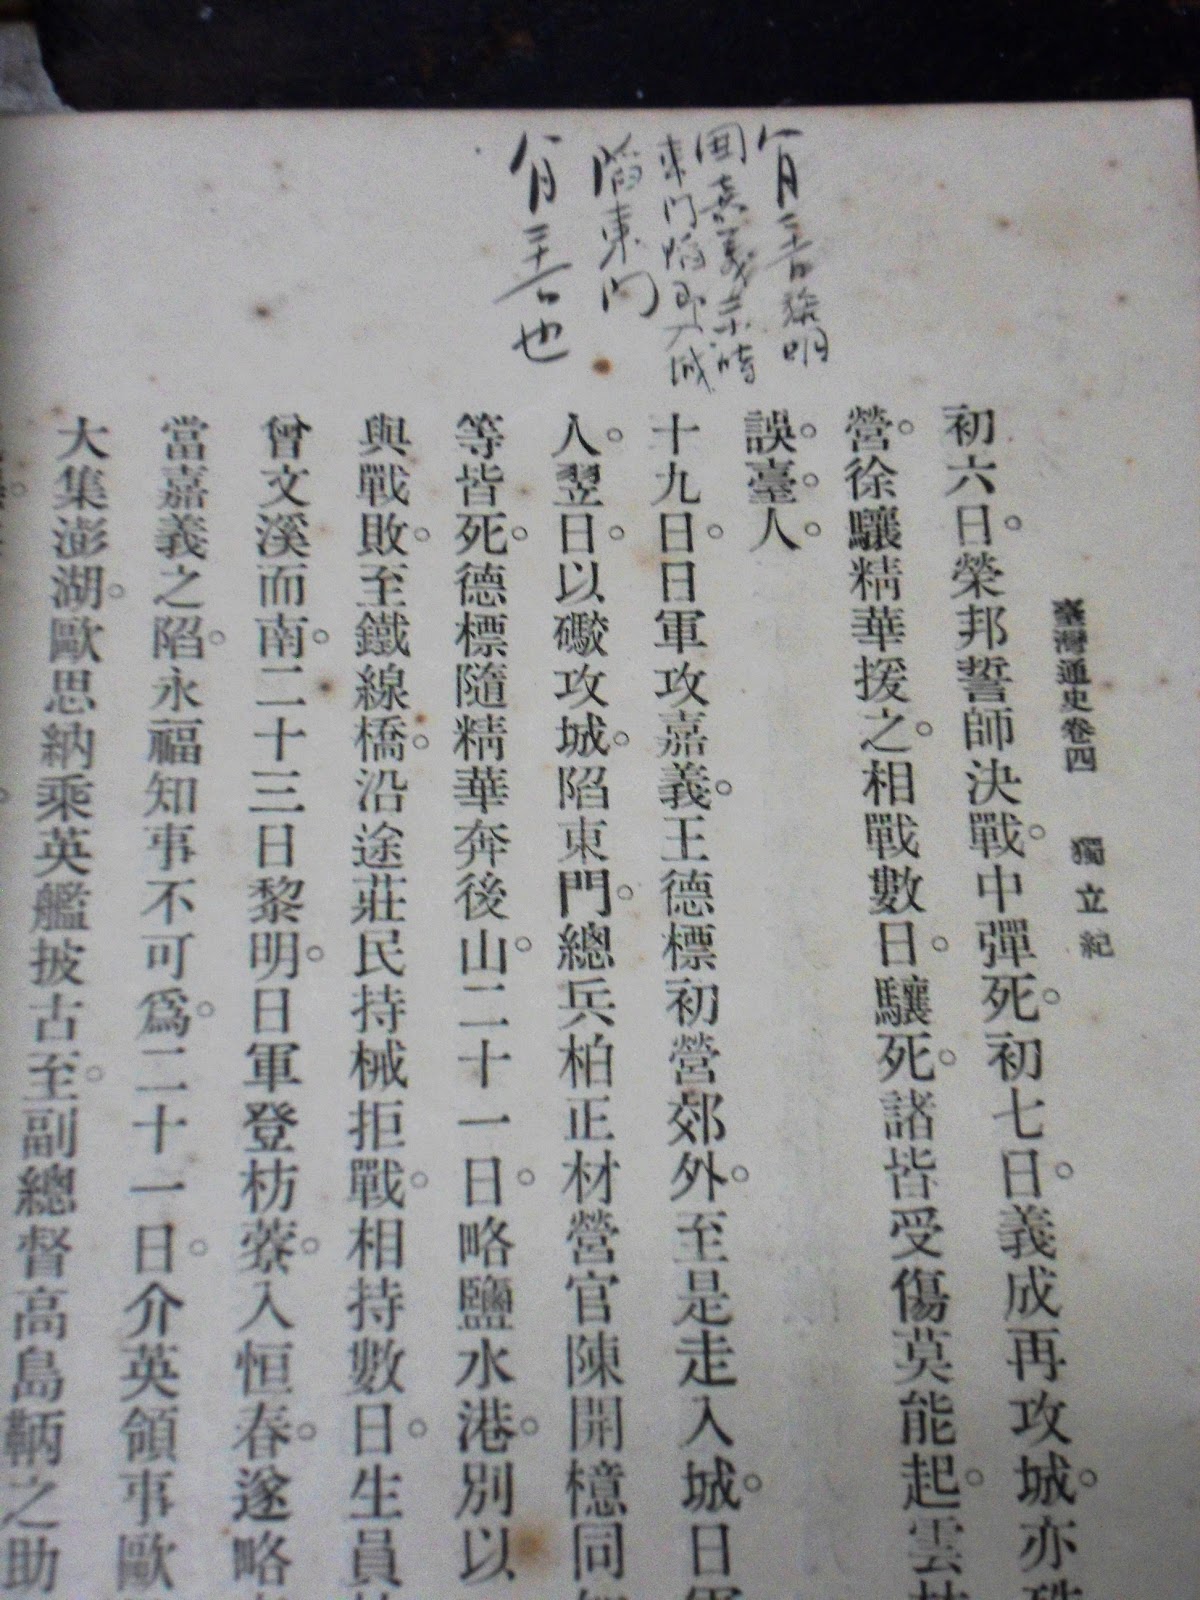 八月二十一日黎明
囲嘉義三小時
東門陷即入城
陷東門
八月二十一日也
臺灣通史卷四 獨立紀
初六日。榮邦誓師決戰。中彈死。初七日。義成再攻城。亦
營。徐驤精華援之。相戰數日。驤死。諸皆受傷莫能起。雲林
誤。臺。人。
十九日。日軍攻嘉義。王德標初營郊外。至是走入城。日軍
入。翌日。以礮攻城。陷東門。總兵柏正材營官陳開檍同
等皆死。德標隨精華奔後山。二十一日。略鹽水港。別以
與戰敗。至鐵線橋。沿途莊民持械拒戰。相持數日。生員
曾文溪而南。二十三日黎明。日軍登枋藔。入恒春。遂略
當嘉義之陷。永福知事不可爲。二十一日。介英領事歐
大集澎湖。歐思納乘英艦披古至。副總督高島鞆之助